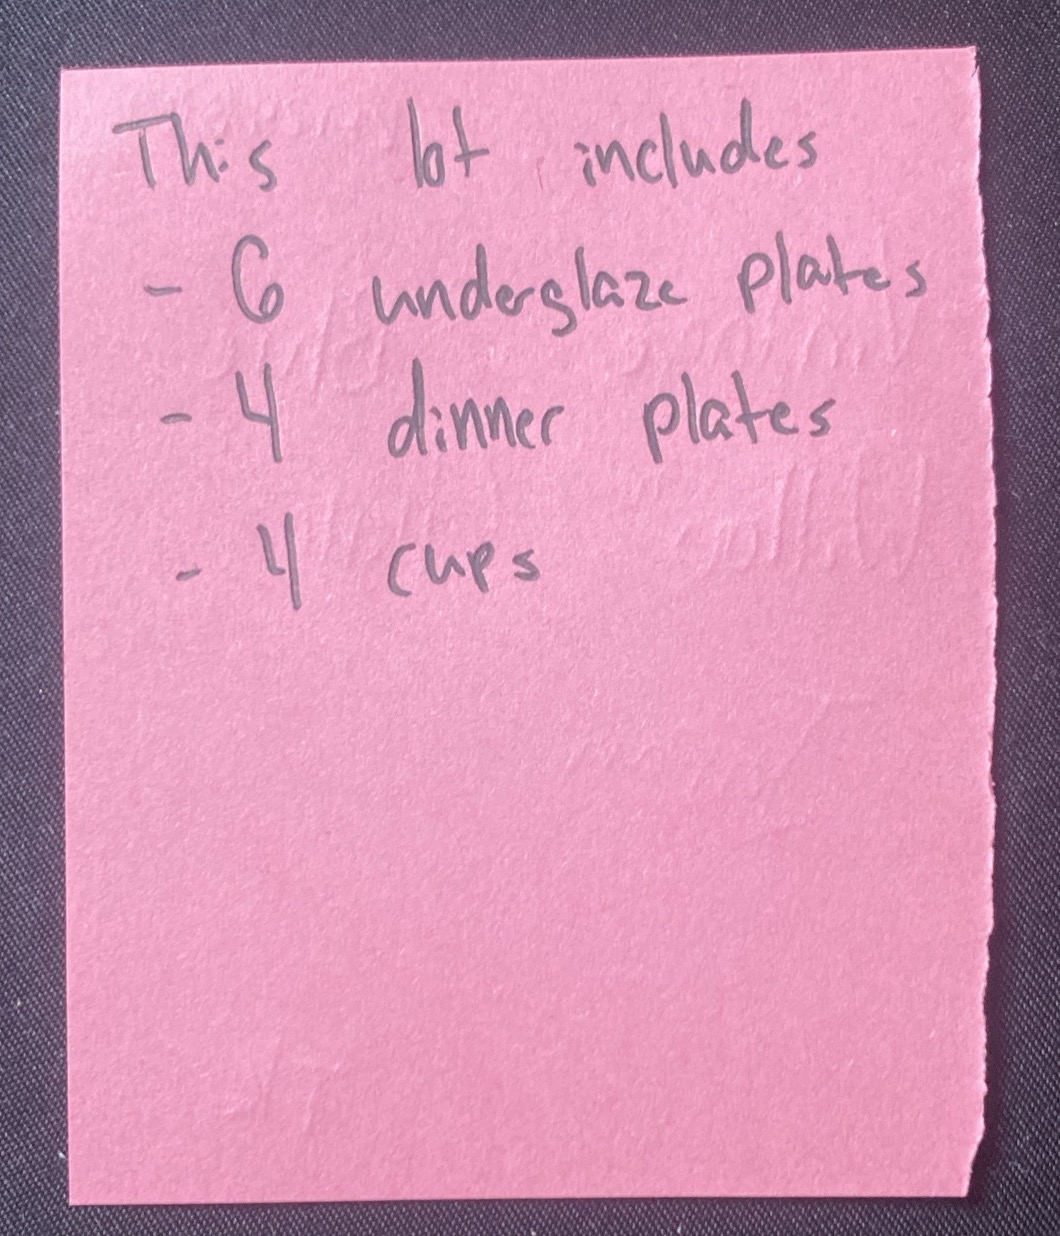 This lot includes
- 6 underglaze plates
- 4 dinner plates
- 4 cups